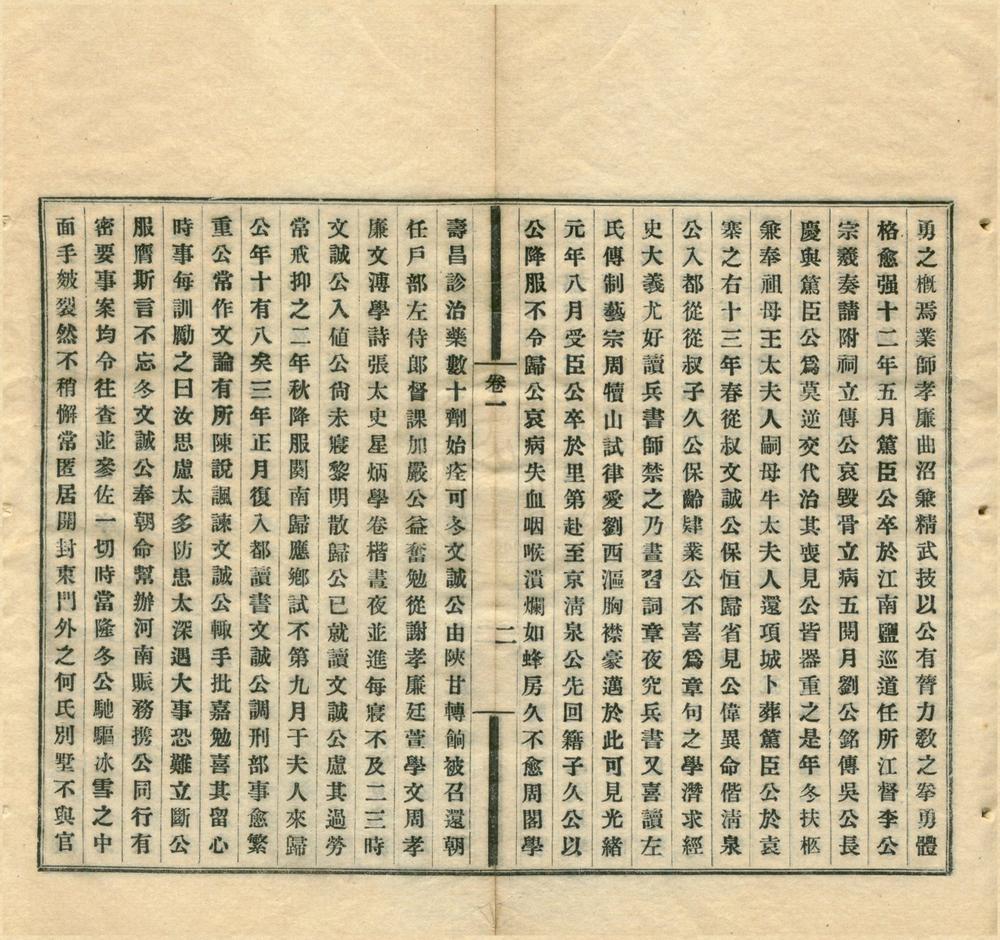 勇之概焉業師孝廉曲沼兼精武技以公有膂力敎之拳勇體
格愈强十二年五月篤臣公卒於江南鹽巡道任所江督李公
宗羲奏請附祠立傳公哀毀骨立病五閱月劉公銘傳吳公長
慶與篤臣公爲莫逆交代治其喪見公皆器重之是年冬扶柩
兼奉祖母王太夫人嗣母牛太夫人還項城卜葬篤臣公於袁
寨之右十三年春從叔文誠公保恒歸省見公偉異命偕淸泉
公入都從從叔子久公保齡肄業公不喜爲章句之學潛求經
史大義尤好讀兵書師禁之乃晝習詞章夜究兵書又喜讀左
氏傳制藝宗周犢山試律愛劉西漚胸襟豪邁於此可見光緒
元年八月受臣公卒於里第赴至京淸泉公先回籍子久公以
公降服不令歸公哀病失血咽喉潰爛如蜂房久不愈周閣學
卷一
二
壽昌診治藥數十劑始痊可冬文誠公由陝甘轉餉被召還朝
任戶部左侍郎督課加嚴公益奮勉從謝孝廉廷萱學文周孝
廉文溥學詩張太史星炳學卷楷晝夜並進每寢不及二三時
文誠公入値公尙未寢黎明散歸公已就讀文誠公慮其過勞
常戒抑之二年秋降服闋南歸應鄕試不第九月于夫人來歸
公年十有八矣三年正月復入都讀書文誠公調刑部事愈繁
重公常作文論有所陳說諷諫文誠公輙手批嘉勉喜其留心
時事每訓勵之曰汝思慮太多防患太深遇大事恐難立斷公
服膺斯言不忘冬文誠公奉朝命幫辦河南賑務携公同行有
密要事案均令往查並參佐一切時當隆冬公馳驅冰雪之中
面手皴裂然不稍懈常匿居開封東門外之何氏別墅不與官